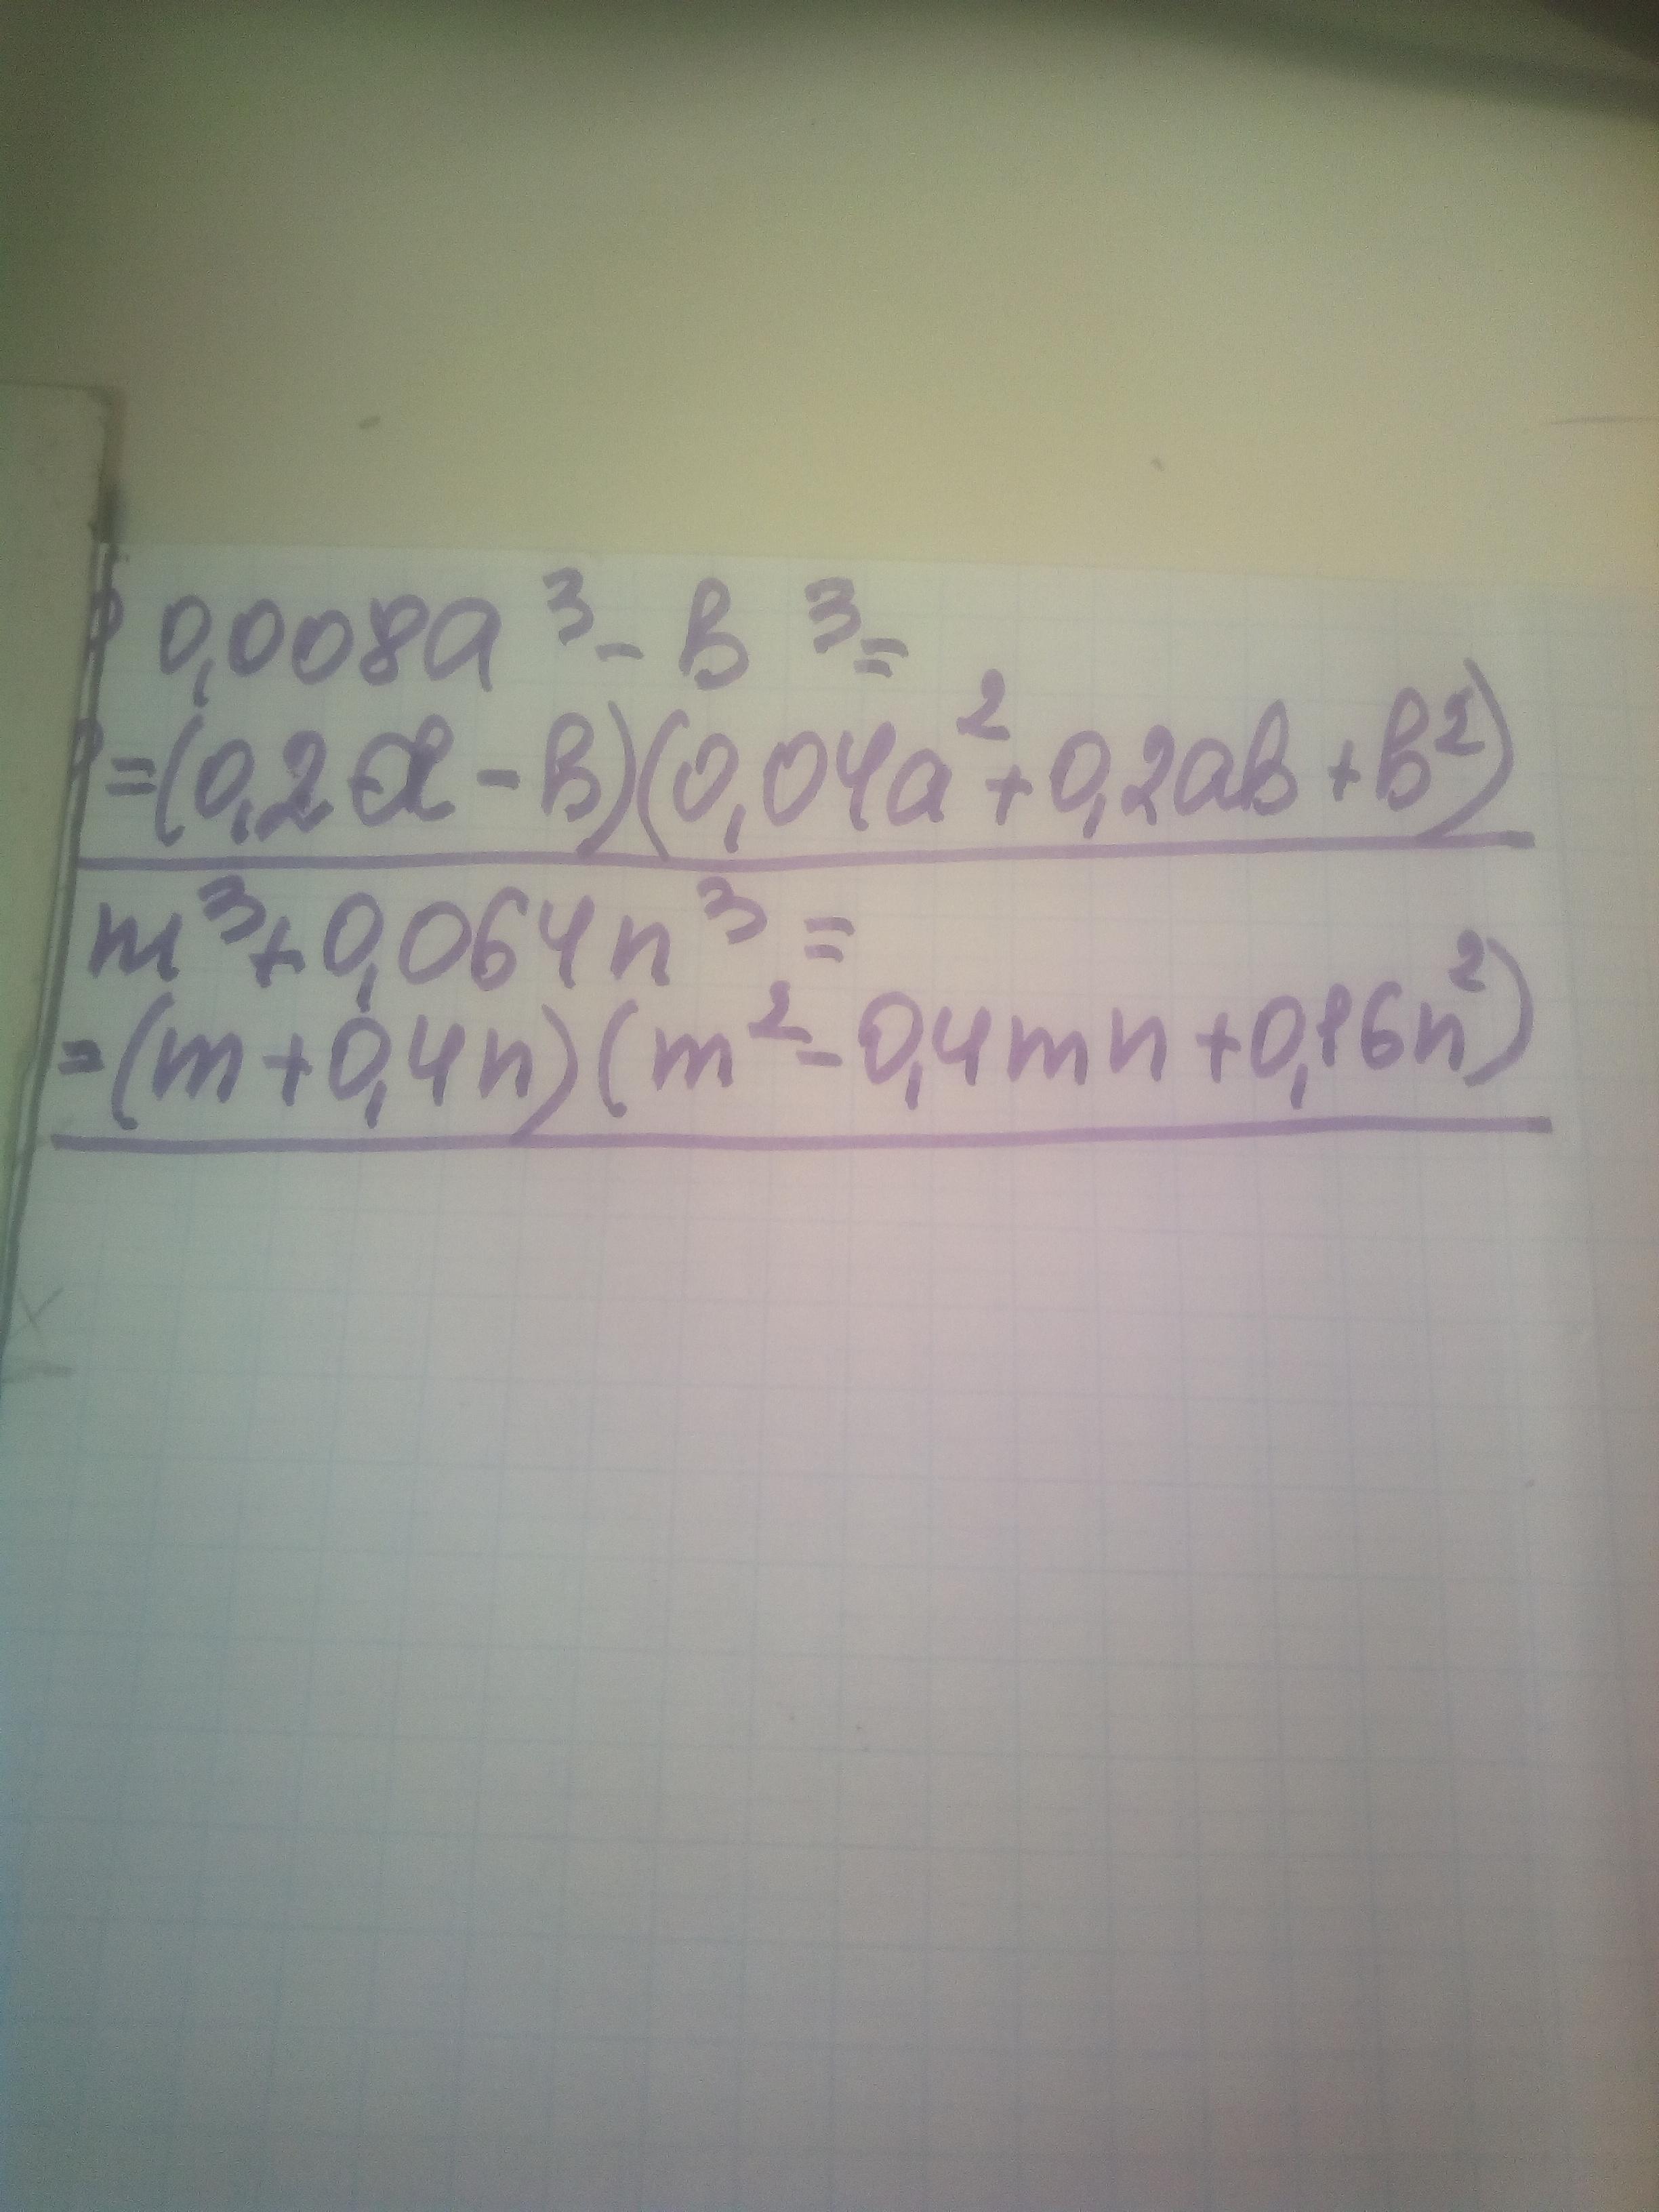 0,008a³ - b³ =
= (0,2a - b)(0,04a² + 0,2ab + b²)
m³ + 0,064n³ =
= (m + 0,4n)(m² - 0,4mn + 0,16n²)